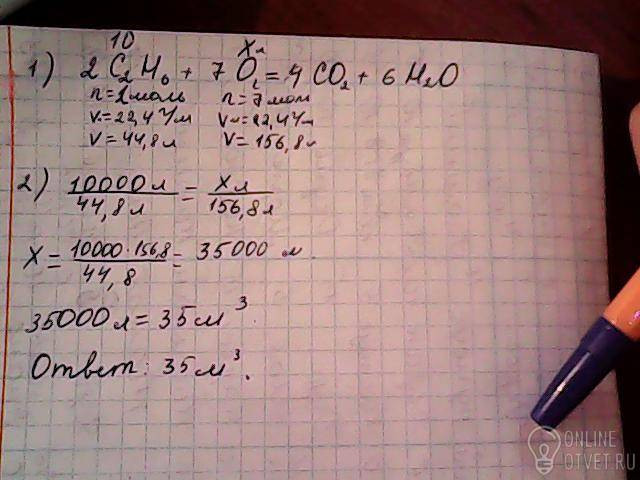 10 Xл
1) 2 C₂H₆ + 7 O₂ = 4 CO₂ + 6 H₂O
n=2моль n=7мол
Vм=22,4 л/м Vм=22,4 л/м
V=44,8л V=156,8л
2) 10000л/44,8л = Xл/156,8л
X = 10000·156,8/44,8 = 35000 л
35000л = 35м³.
Ответ: 35м³.
ONLINE
OTVET.RU